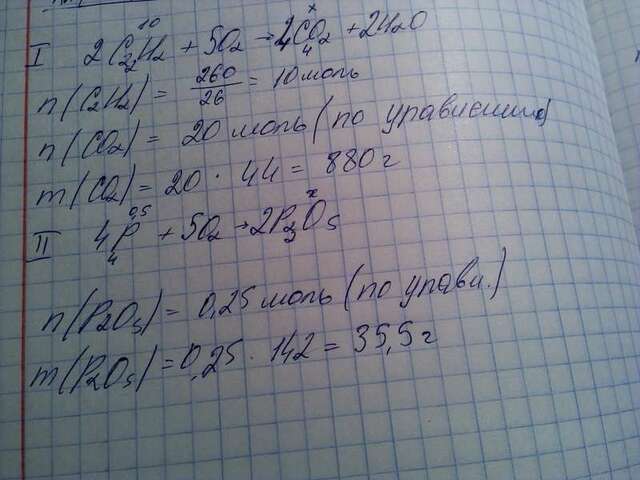 10 x
I 2C2H2 + 5O2 → 4CO2 + 2H2O
2 4
n(C2H2) = 260/26 = 10 моль
n(CO2) = 20 моль (по уравнению)
m(CO2) = 20 · 44 = 880 г
0,5 x
II 4P + 5O2 → 2P2O5
4
n(P2O5) = 0,25 моль (по уравн.)
m(P2O5) = 0,25 · 142 = 35,5 г